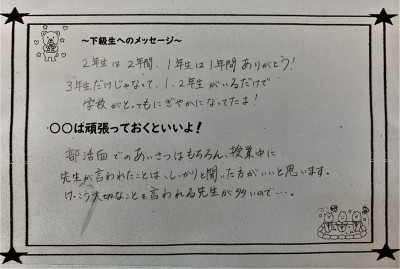 ～下級生へのメッセージ～
2年生は2年間、1年生は1年間ありがとう!
3年生だけじゃなくて、1、2年生がいるだけで
学校がとってもにぎやかになってたよ!
・〇〇は頑張っておくといいよ!
部活面でのあいさつはもちろん、授業中に
先生が言われたことは、しっかりと聞いた方がいいと思います。
けっこう大切なことを言われる先生が多いので…。